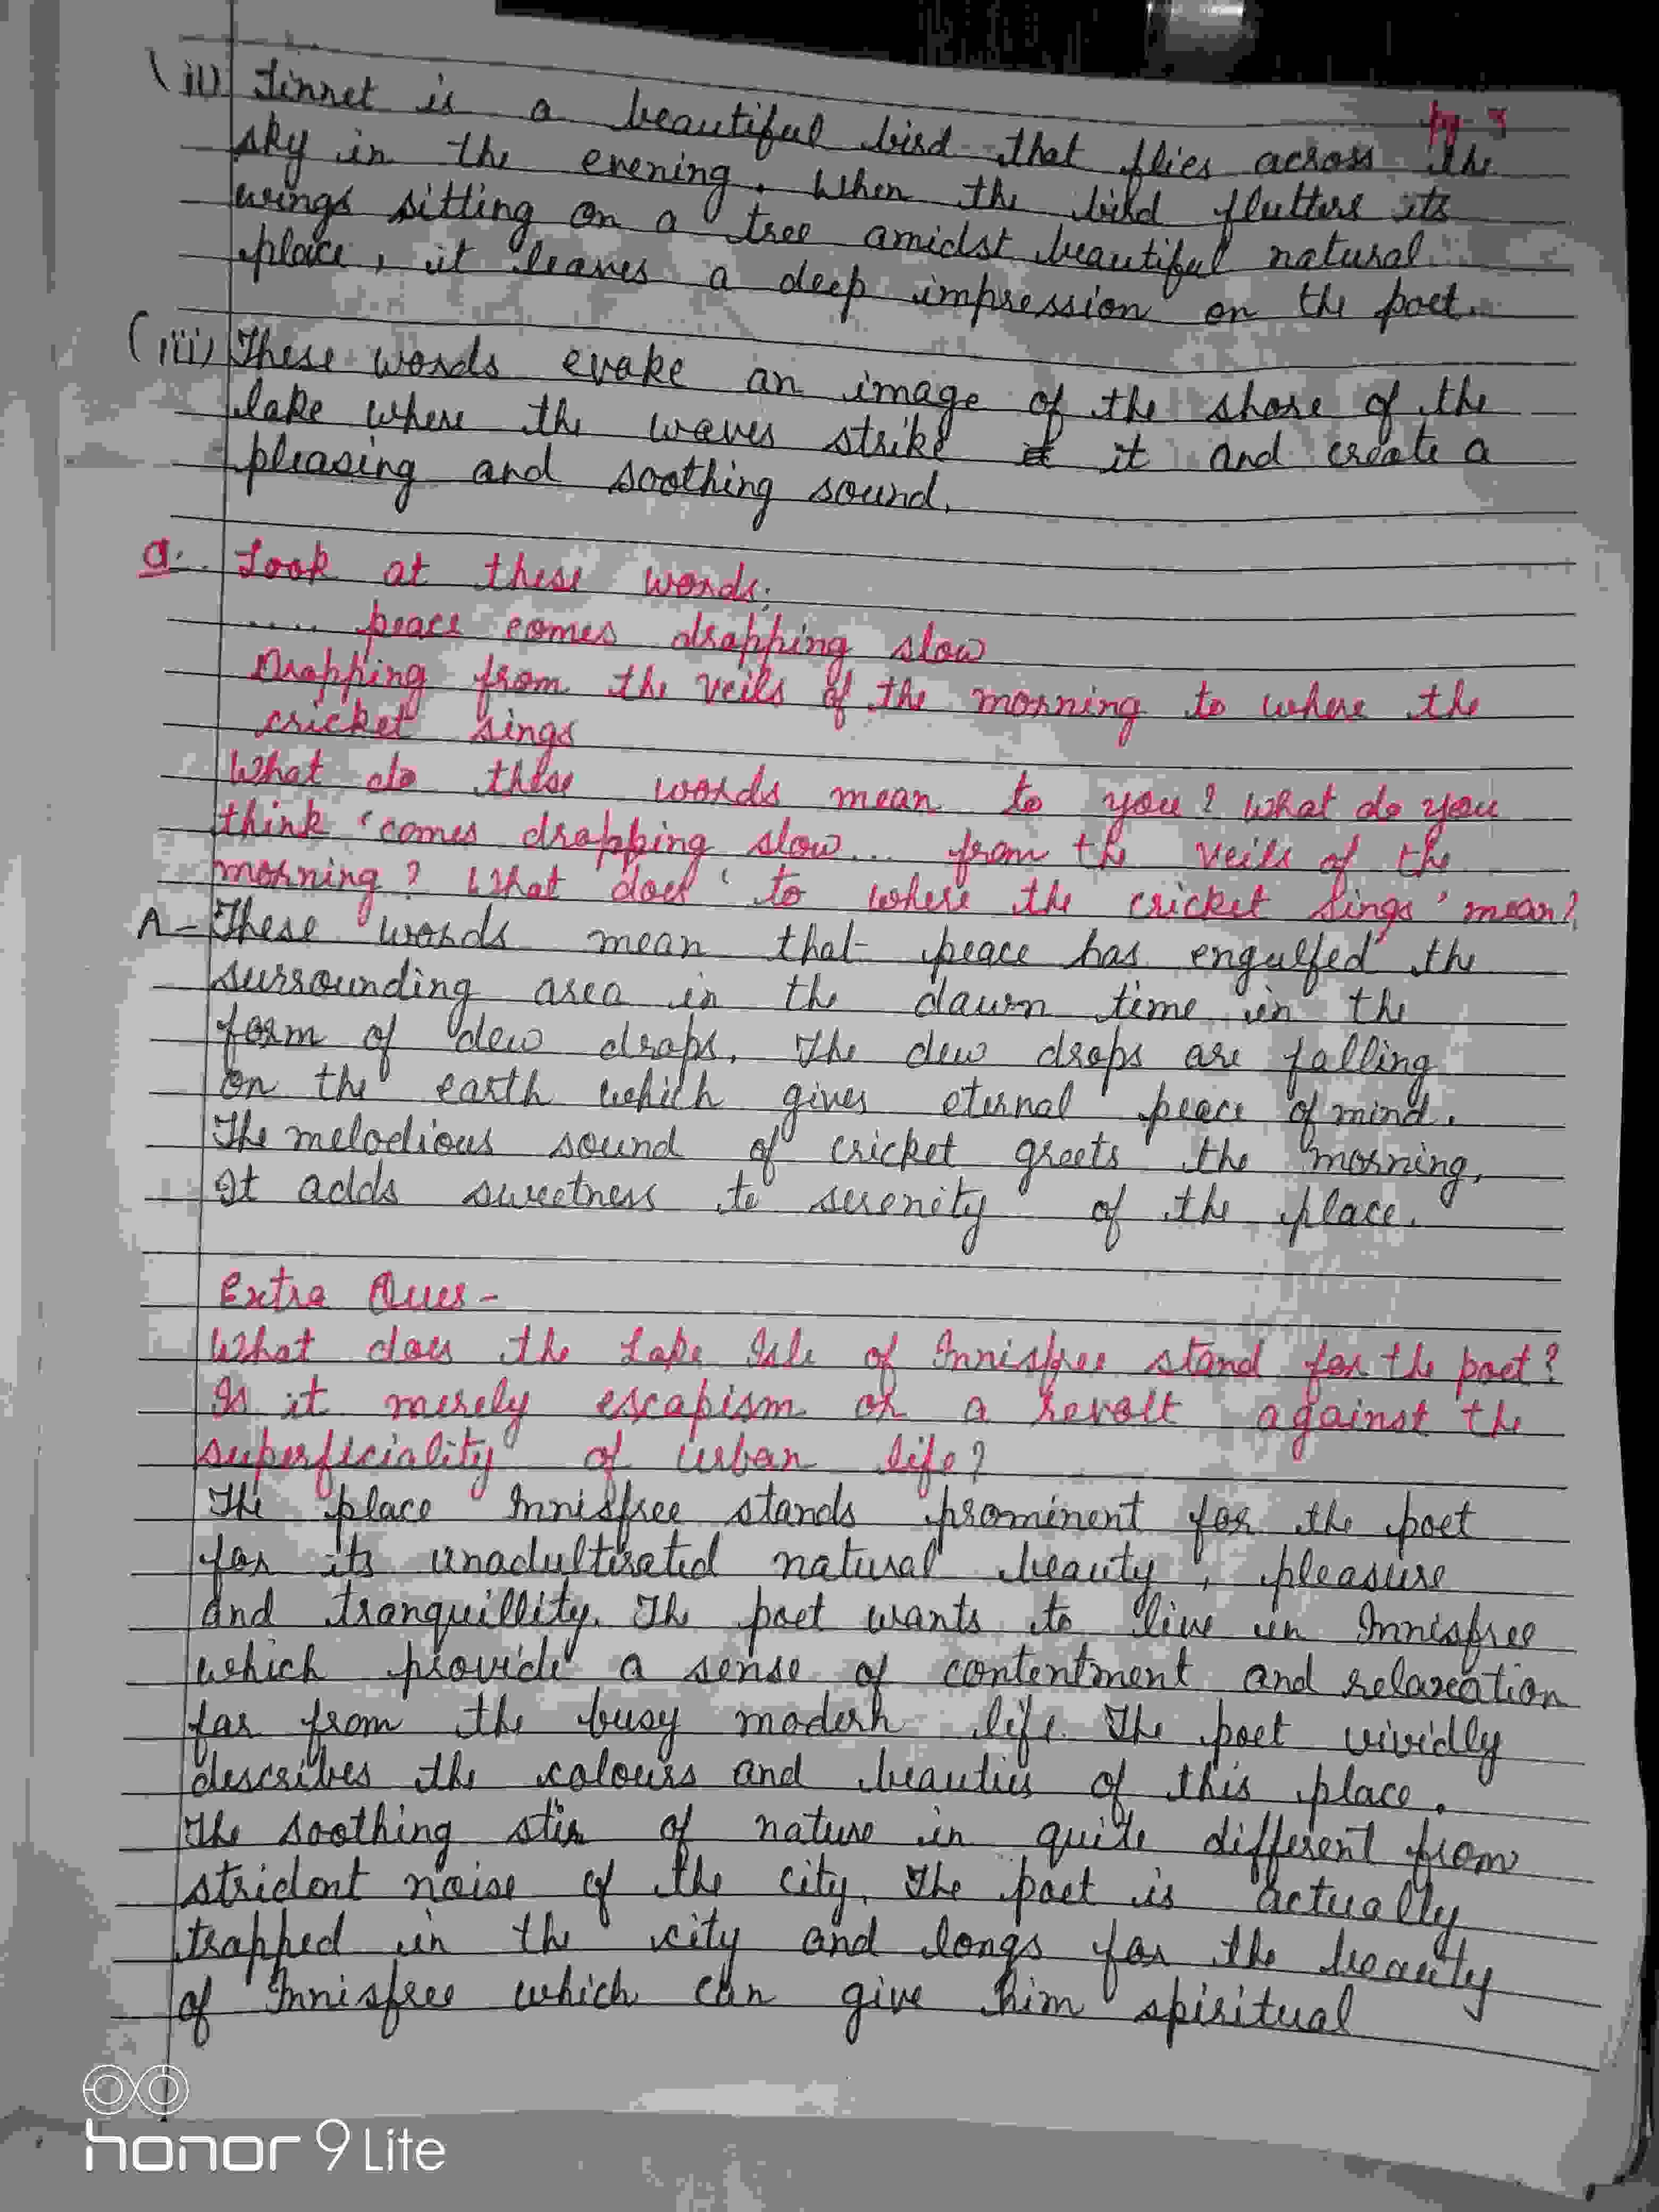 pg 3
(ii) Linnet is a beautiful bird that flies across the
sky in the evening. When the bird flutters its
wings sitting on a tree amidst beautiful natural
place, it leaves a deep impression on the poet.
(iii) These words evoke an image of the shore of the
lake where the waves strike it and create a
pleasing and soothing sound.
Q. Look at these words:
.... peace comes dropping slow
Dropping from the veils of the morning to where the
cricket sings
What do these words mean to you? What do you
think 'comes dropping slow... from the veils of the
morning? What does 'to where the cricket sings' mean?
A- These words mean that peace has engulfed the
surrounding area in the dawn time in the
form of dew drops. The dew drops are falling
on the earth which gives eternal peace of mind.
The melodious sound of cricket greets the morning.
It adds sweetness to serenity of the place.
Extra Ques -
What does the Lake Isle of Innisfree stand for the poet?
Is it merely escapism or a revolt against the
superficiality of urban life?
The place Innisfree stands prominent for the poet
for its unadulterated natural beauty, pleasure
and tranquillity. The poet wants to live in Innisfree
which provide a sense of contentment and relaxation
far from the busy modern life. The poet vividly
describes the colours and beauties of this place.
The soothing stir of nature in quite different from
strident noise of the city. The poet is actually
trapped in the city and longs for the beauty
of Innisfree which can give him spiritual
honor 9 Lite